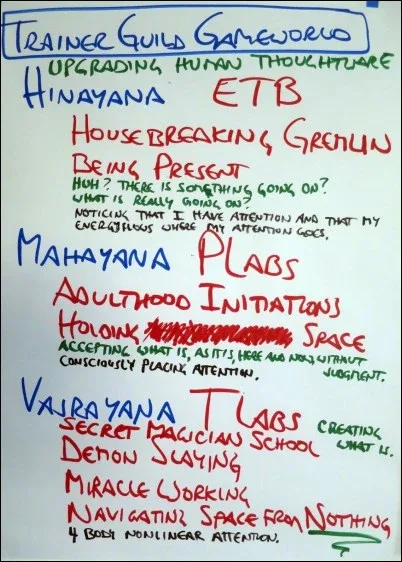 TRAINER GUILD GAMEWORLD
UPGRADING HUMAN THOUGHTWARE
HINAYANA ETB
HOUSEBREAKING GREMLIN
BEING PRESENT
HUH? THERE IS SOMETHING GOING ON?
WHAT IS REALLY GOING ON?
NOTICING THAT I HAVE ATTENTION AND THAT MY
ENERGY FLOWS WHERE MY ATTENTION GOES.
MAHAYANA PLABS
ADULTHOOD INITIATIONS
HOLDING SPACE
ACCEPTING WHAT IS, AS IT IS, HERE AND NOW, WITHOUT
JUDGMENT.
CONSCIOUSLY PLACING ATTENTION.
VAJRAYANA TLABS CREATING
WHAT IS.
SECRET MAGICIAN SCHOOL
DEMON SLAYING
MIRACLE WORKING
NAVIGATING SPACE FROM NOTHING
4 BODY NONLINEAR ATTENTION.